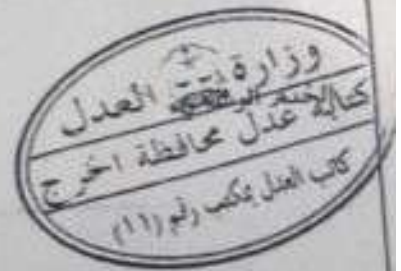 وزارة العدل
كتابة عدل محافظة الخرج
كاتب العدل بمكتب رقم (١١)